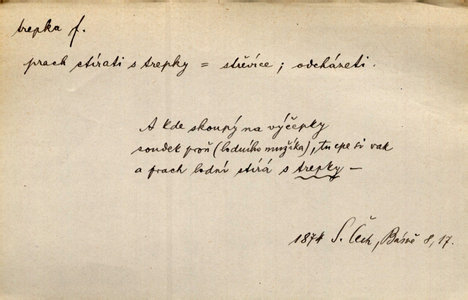 trepka f.
prach stírati s trepky = střevíce; odcházeti.
A kde skoupý na výčepky
soudek proň (lodního muzika), tu epe si vak
a prach lodní stírá s trepky —
1874 S. Čech, Básně 8, 17.